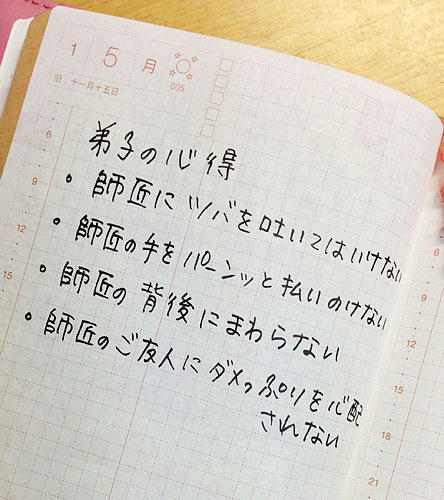 1 5 月
旧：十一月十五日
005
弟子の心得
• 師匠にツバを吐いてはいけない
• 師匠の手をパーンッと払いのけない
• 師匠の背後にまわらない
• 師匠のご友人にダメっぷりを心配
されない
6
9
12
15
12
15
18
21